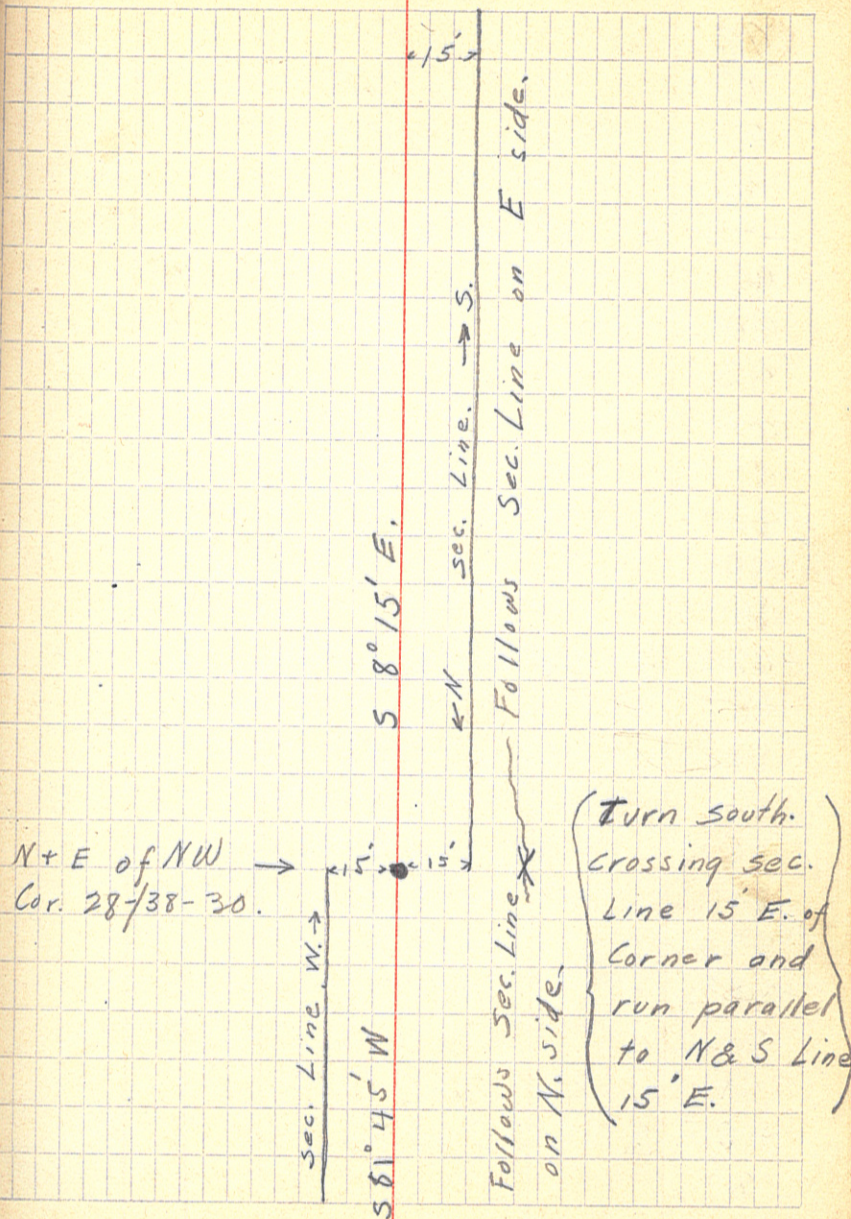 15'
Follows Sec. Line on E side.
← N sec. Line. → S.
S 8° 15' E.
N + E of NW →
Cor. 28-/38-30.
15' 15'
sec. Line W. →
S 81° 45' W
Follows Sec. Line
on N. side.
Turn south.
crossing sec.
Line 15' E. of
Corner and
run parallel
to N & S Line
15' E.